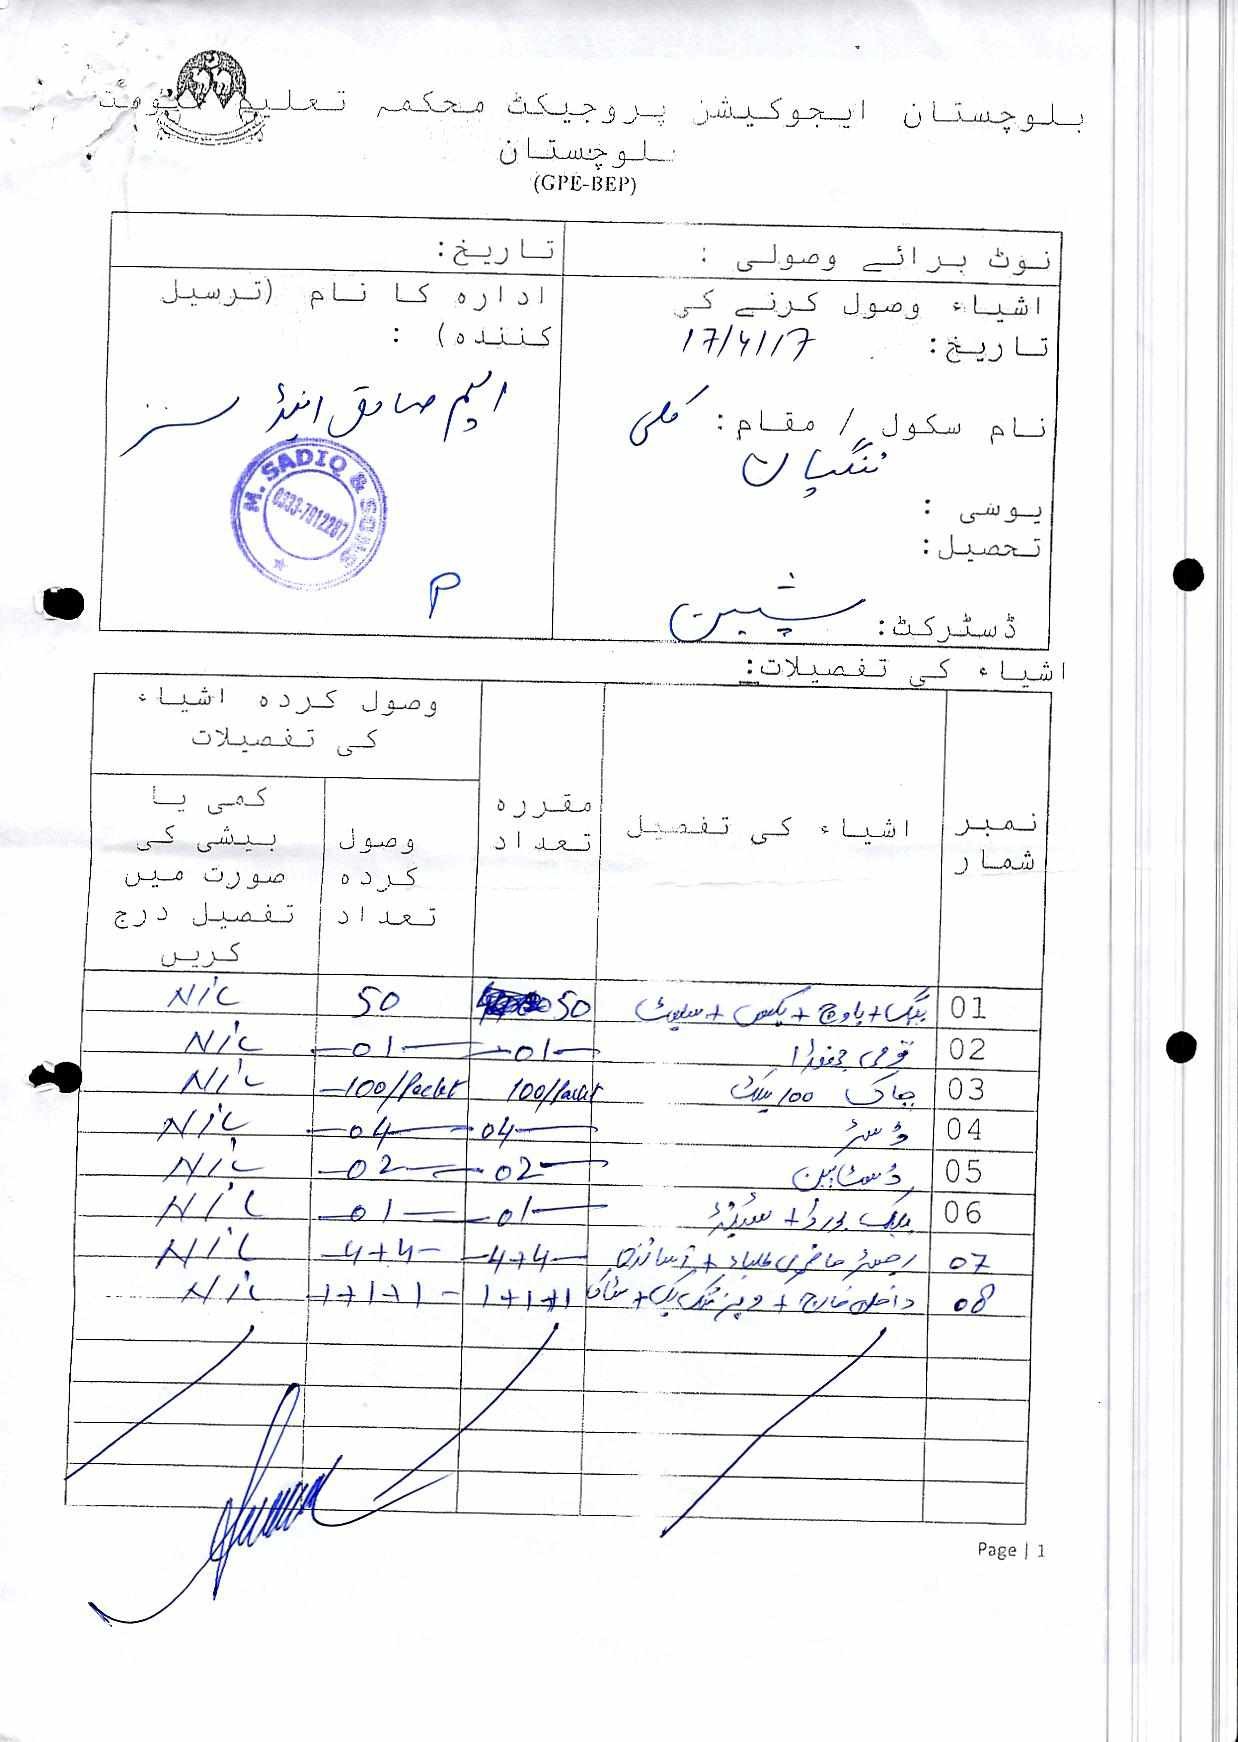 بلوچستان ایجوکیشن پروجیکٹ محکمہ تعلیم حکومت
بلوچستان
(GPE-BEP)
نوٹ برائے وصولی :
تاریخ:
اشیاء وصول کرنے کی
تاریخ: 17/4/17
نام سکول / مقام: کلی
یوسی :
تحصیل:
ڈسٹرکٹ: پشین
ادارہ کا نام (ترسیل
کنندہ) :
ایم صادق اینڈ سنز
M. SADIQ & SONS
0333-7912287
P
اشیاء کی تفصیلات:
نمبر شمار
اشیاء کی تفصیل
مقررہ تعداد
وصول کردہ اشیاء
کی تفصیلات
وصول کردہ تعداد
کمی یا
بیشی کی
صورت میں
تفصیل درج
کریں
01 بیگ + باوچ + بکس + سلیٹ 50 50 N/C
02 قومی جھنڈا 01 01 N/C
03 چاک 100 پیکٹ 100/Packet 100/Packet N/C
04 ڈسٹر 04 04 N/C
05 ڈسٹ بین 02 02 N/C
06 بلیک بورڈ + سٹینڈ 01 01 N/C
07 رجسٹر حاضری طلباء + اساتذہ 4+4 4+4 N/C
08 داخل خارج + وزیٹنگ بک + سٹاک 1+1+1 1+1+1 N/C
Page | 1